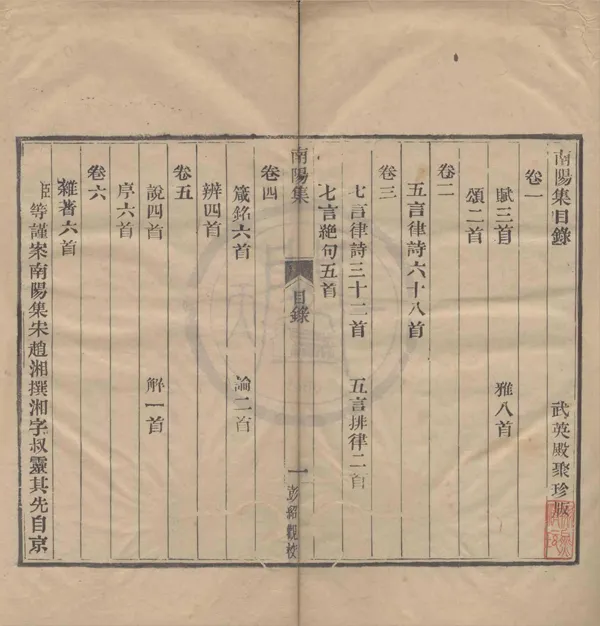 南陽集目錄 武英殿聚珍版
卷一
賦三首 雅八首
頌二首
卷二
五言律詩六十八首
卷三
七言律詩三十二首 五言排律二首
七言絕句五首
南陽集 目錄 一 彭紹觀校
卷四
箴銘六首 論二首
辨四首
卷五
說四首 解一首
序六首
卷六
雜著六首
臣等謹案南陽集宋趙湘撰湘字叔靈其先自京